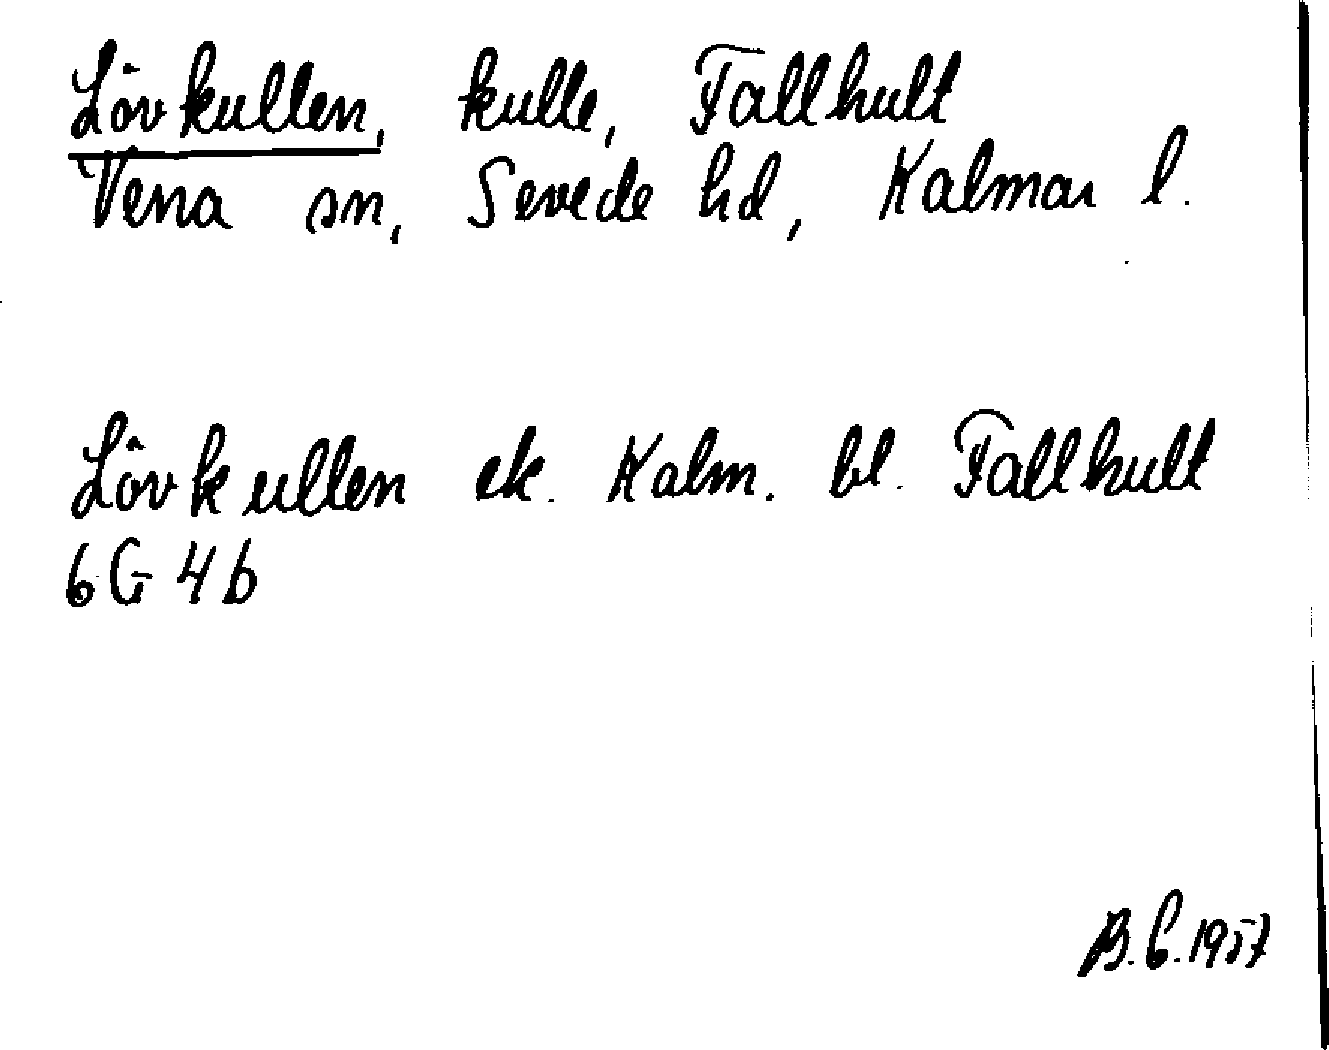 Lövkullen, kulle, Fallhult
Vena sn, Sevede hd, Kalmar l.
Lövkullen ek. Kalm. bl. Fallhult
6G 4b
B.C.1957